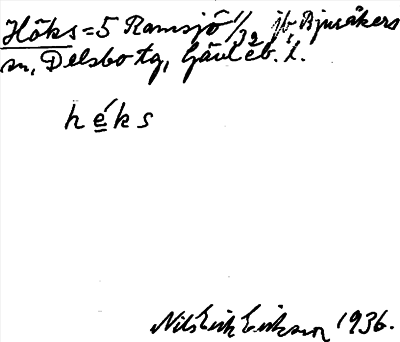 Höks = 5 Ramsjö 1/32 jb Bjuråkers
sn, Delsbo tg, Gävleb. l.
h é k s
Nils Erik Erikson 1936.